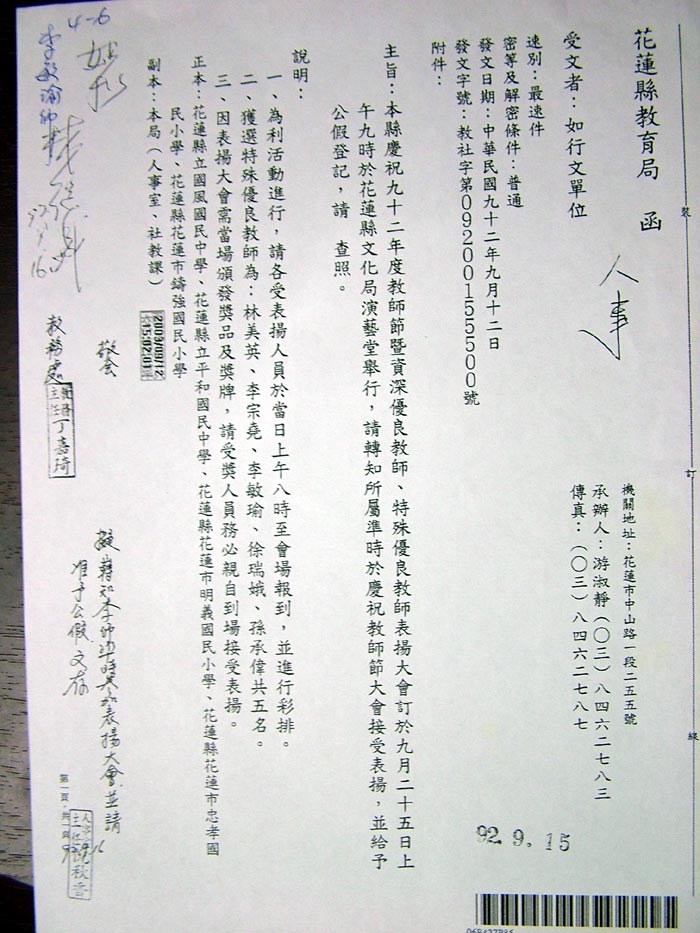 花蓮縣教育局　函
人事
機關地址：花蓮市中山路一段二五五號
承辦人：游淑靜（０３）八四六二七八三
傳真：（０３）八四六二七八七
受文者：如行文單位
速別：最速件
密等及解密條件：普通
發文日期：中華民國九十二年九月十二日
發文字號：教社字第０９２００１５５５００號
附件：
92. 9. 15
主旨：本縣慶祝九十二年度教師節暨資深優良教師、特殊優良教師表揚大會訂於九月二十五日上
午九時於花蓮縣文化局演藝堂舉行，請轉知所屬準時於慶祝教師節大會接受表揚，並給予
公假登記，請　查照。
說明：
一、為利活動進行，請各受表揚人員於當日上午八時至會場報到，並進行彩排。
二、獲選特殊優良教師為：林美英、李宗堯、李敏瑜、徐瑞娥、孫承偉共五名。
三、因表揚大會需當場頒發獎品及獎牌，請受獎人員務必親自到場接受表揚。
正本：花蓮縣立國風國民中學、花蓮縣立平和國民中學、花蓮縣花蓮市明義國民小學、花蓮縣花蓮市忠孝國
民小學、花蓮縣花蓮市鑄強國民小學
副本：本局（人事室、社教課）
2003/09/12
15:02:01
4-6
李敏瑜
敬會
教務處
教務
主任
丁嘉琦
師準時參加表揚大會並請
准予公假 文存
第一頁，共一頁
人事
主任
秋香
裝
訂
線